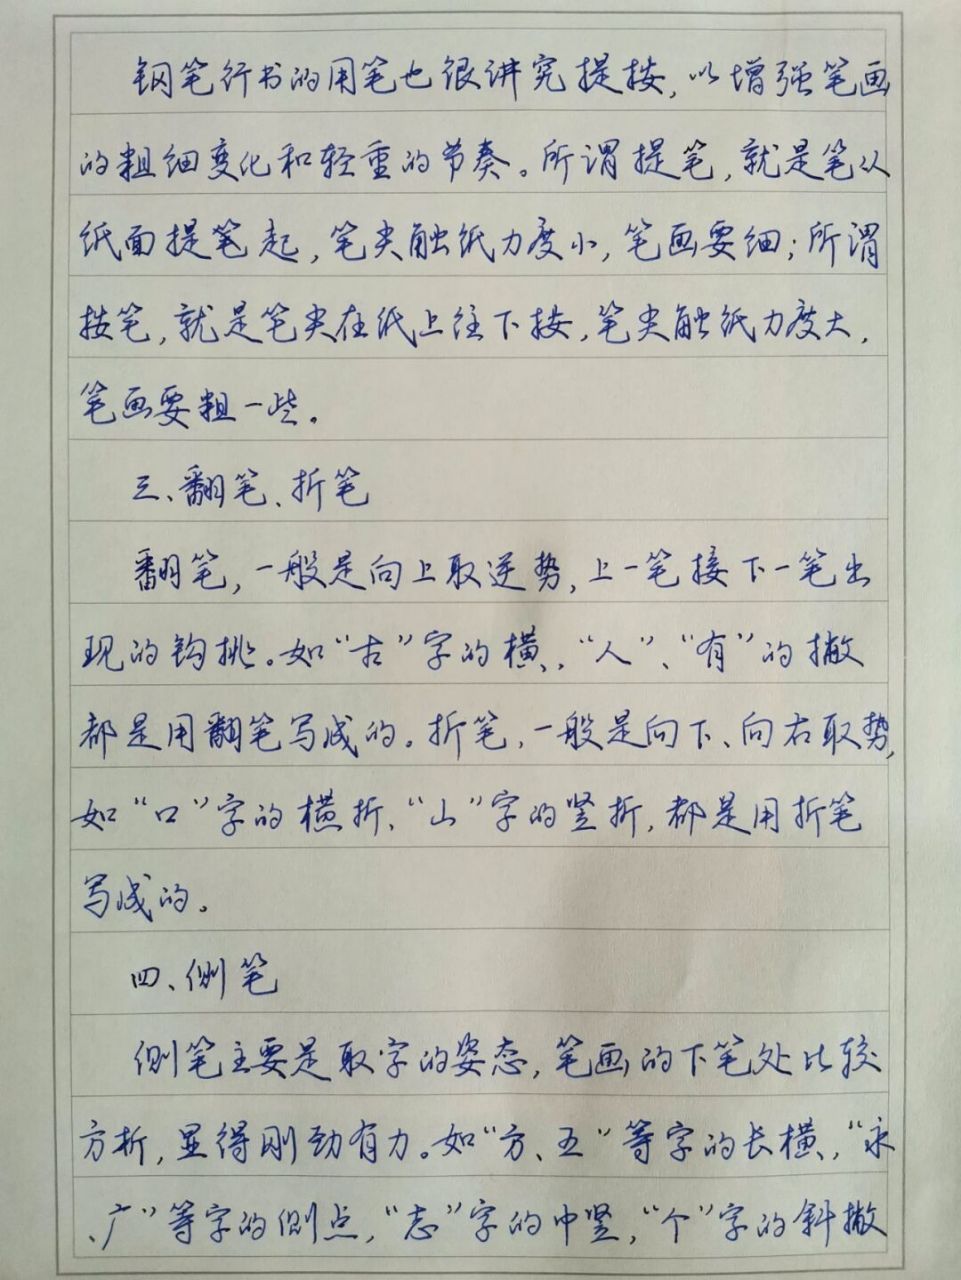 钢笔行书的用笔也很讲究提按,以增强笔画
的粗细变化和轻重的节奏。所谓提笔,就是笔从
纸面提笔起,笔尖触纸力度小,笔画要细;所谓
按笔,就是笔尖在纸上往下按,笔尖触纸力度大,
笔画要粗一些。
三、翻笔、折笔
翻笔,一般是向上取逆势,上一笔接下一笔出
现的钩挑。如“古”字的横、,“人”、“有”的撇
都是用翻笔写成的。折笔,一般是向下、向右取势,
如“口”字的横折、“山”字的竖折,都是用折笔
写成的。
四、侧笔
侧笔主要是取字的姿态,笔画的下笔处比较
方折,显得刚劲有力。如“方、五”等字的长横、,“永
、广”等字的侧点,“志”字的中竖,“个”字的斜撇